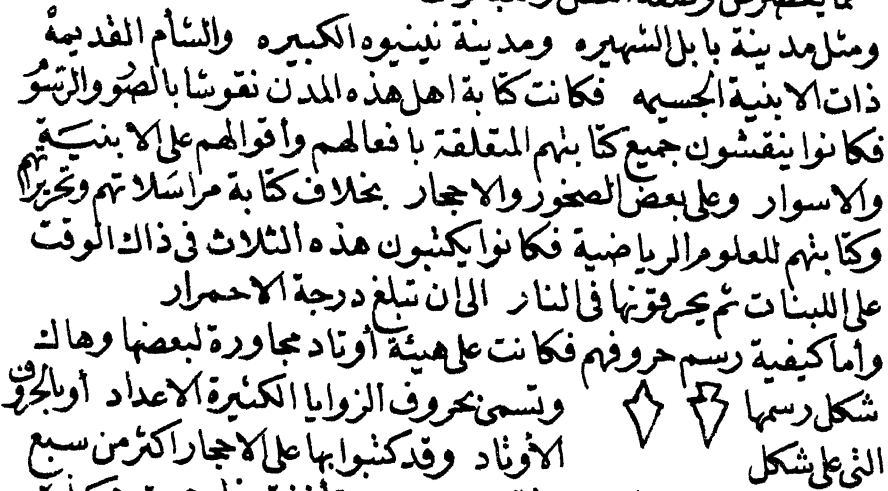 ومثل مدينة بابل الشهيره ومدينة نينيوه الكبيره والشأم القديمة
ذات الابنية الجسيمه فكانت كتابة اهل هذه المدن نقوشا بالصور والرسوم
فكانوا ينقشون جميع كتابتهم المتعلقة بافعالهم وأقوالهم على الابنيـة
والاسوار وعلى بعض الصخور والاحجار بخلاف كتابة مراسلاتهم وتحريراتهم
وكتابتهم للعلوم الرياضية فكانوا يكتبون هذه الثلاث فى ذاك الوقت
على اللبنات ثم يحرقونها فى النار الى ان تبلغ درجة الاحمرار
وأما كيفية رسم حروفهم فكانت على هيئة أوتاد مجاورة لبعضها وهاك
شكل رسمها وتسمى بحروف الزوايا الكثيرة الاعداد أو بالحروف
التى على شكل الأوتاد وقد كتبوا بها على الاحجار اكثر من سبع